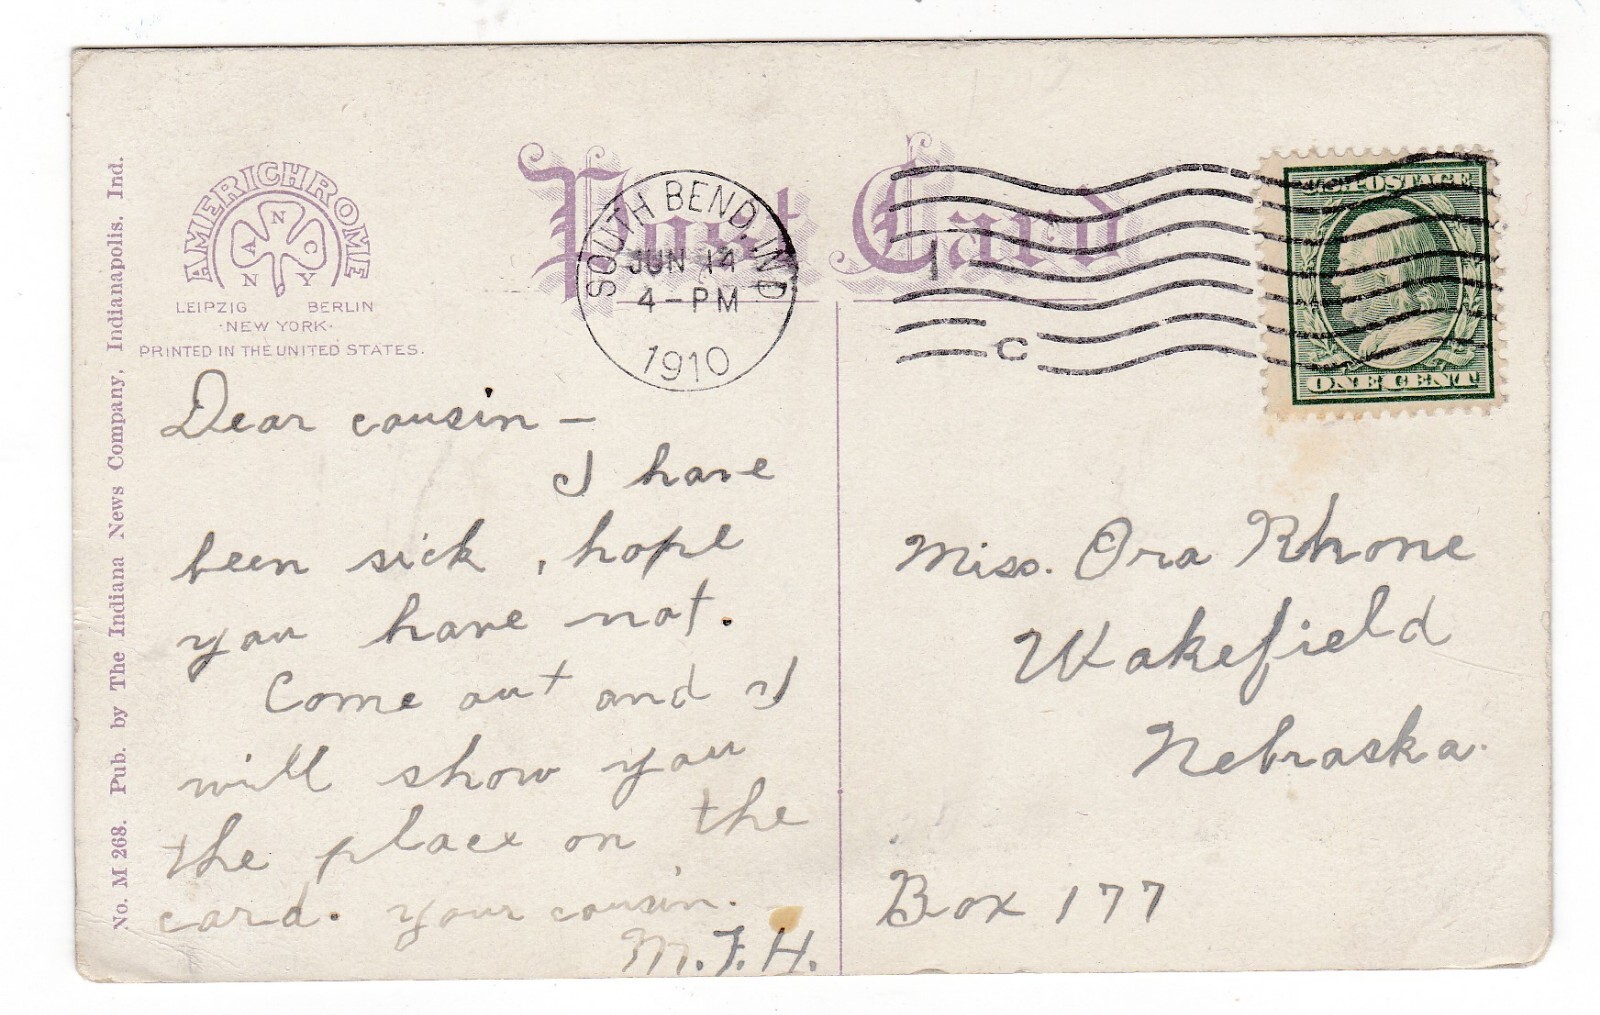 No. M 268. Pub. by The Indiana News Company, Indianapolis. Ind.
AMERICHROME
N
A C
N Y
LEIPZIG BERLIN
·NEW YORK·
PRINTED IN THE UNITED STATES.
Post Card
SOUTH BEND, IND
JUN 14
4-PM
1910
1
C
U.S. POSTAGE
ONE CENT
Dear cousin –
I have
been sick, hope
you have not.
Come out and I
will show you
the place on the
card. Your cousin.
M.F.H.
Miss. Ora Rhone
Wakefield
Nebraska.
Box 177